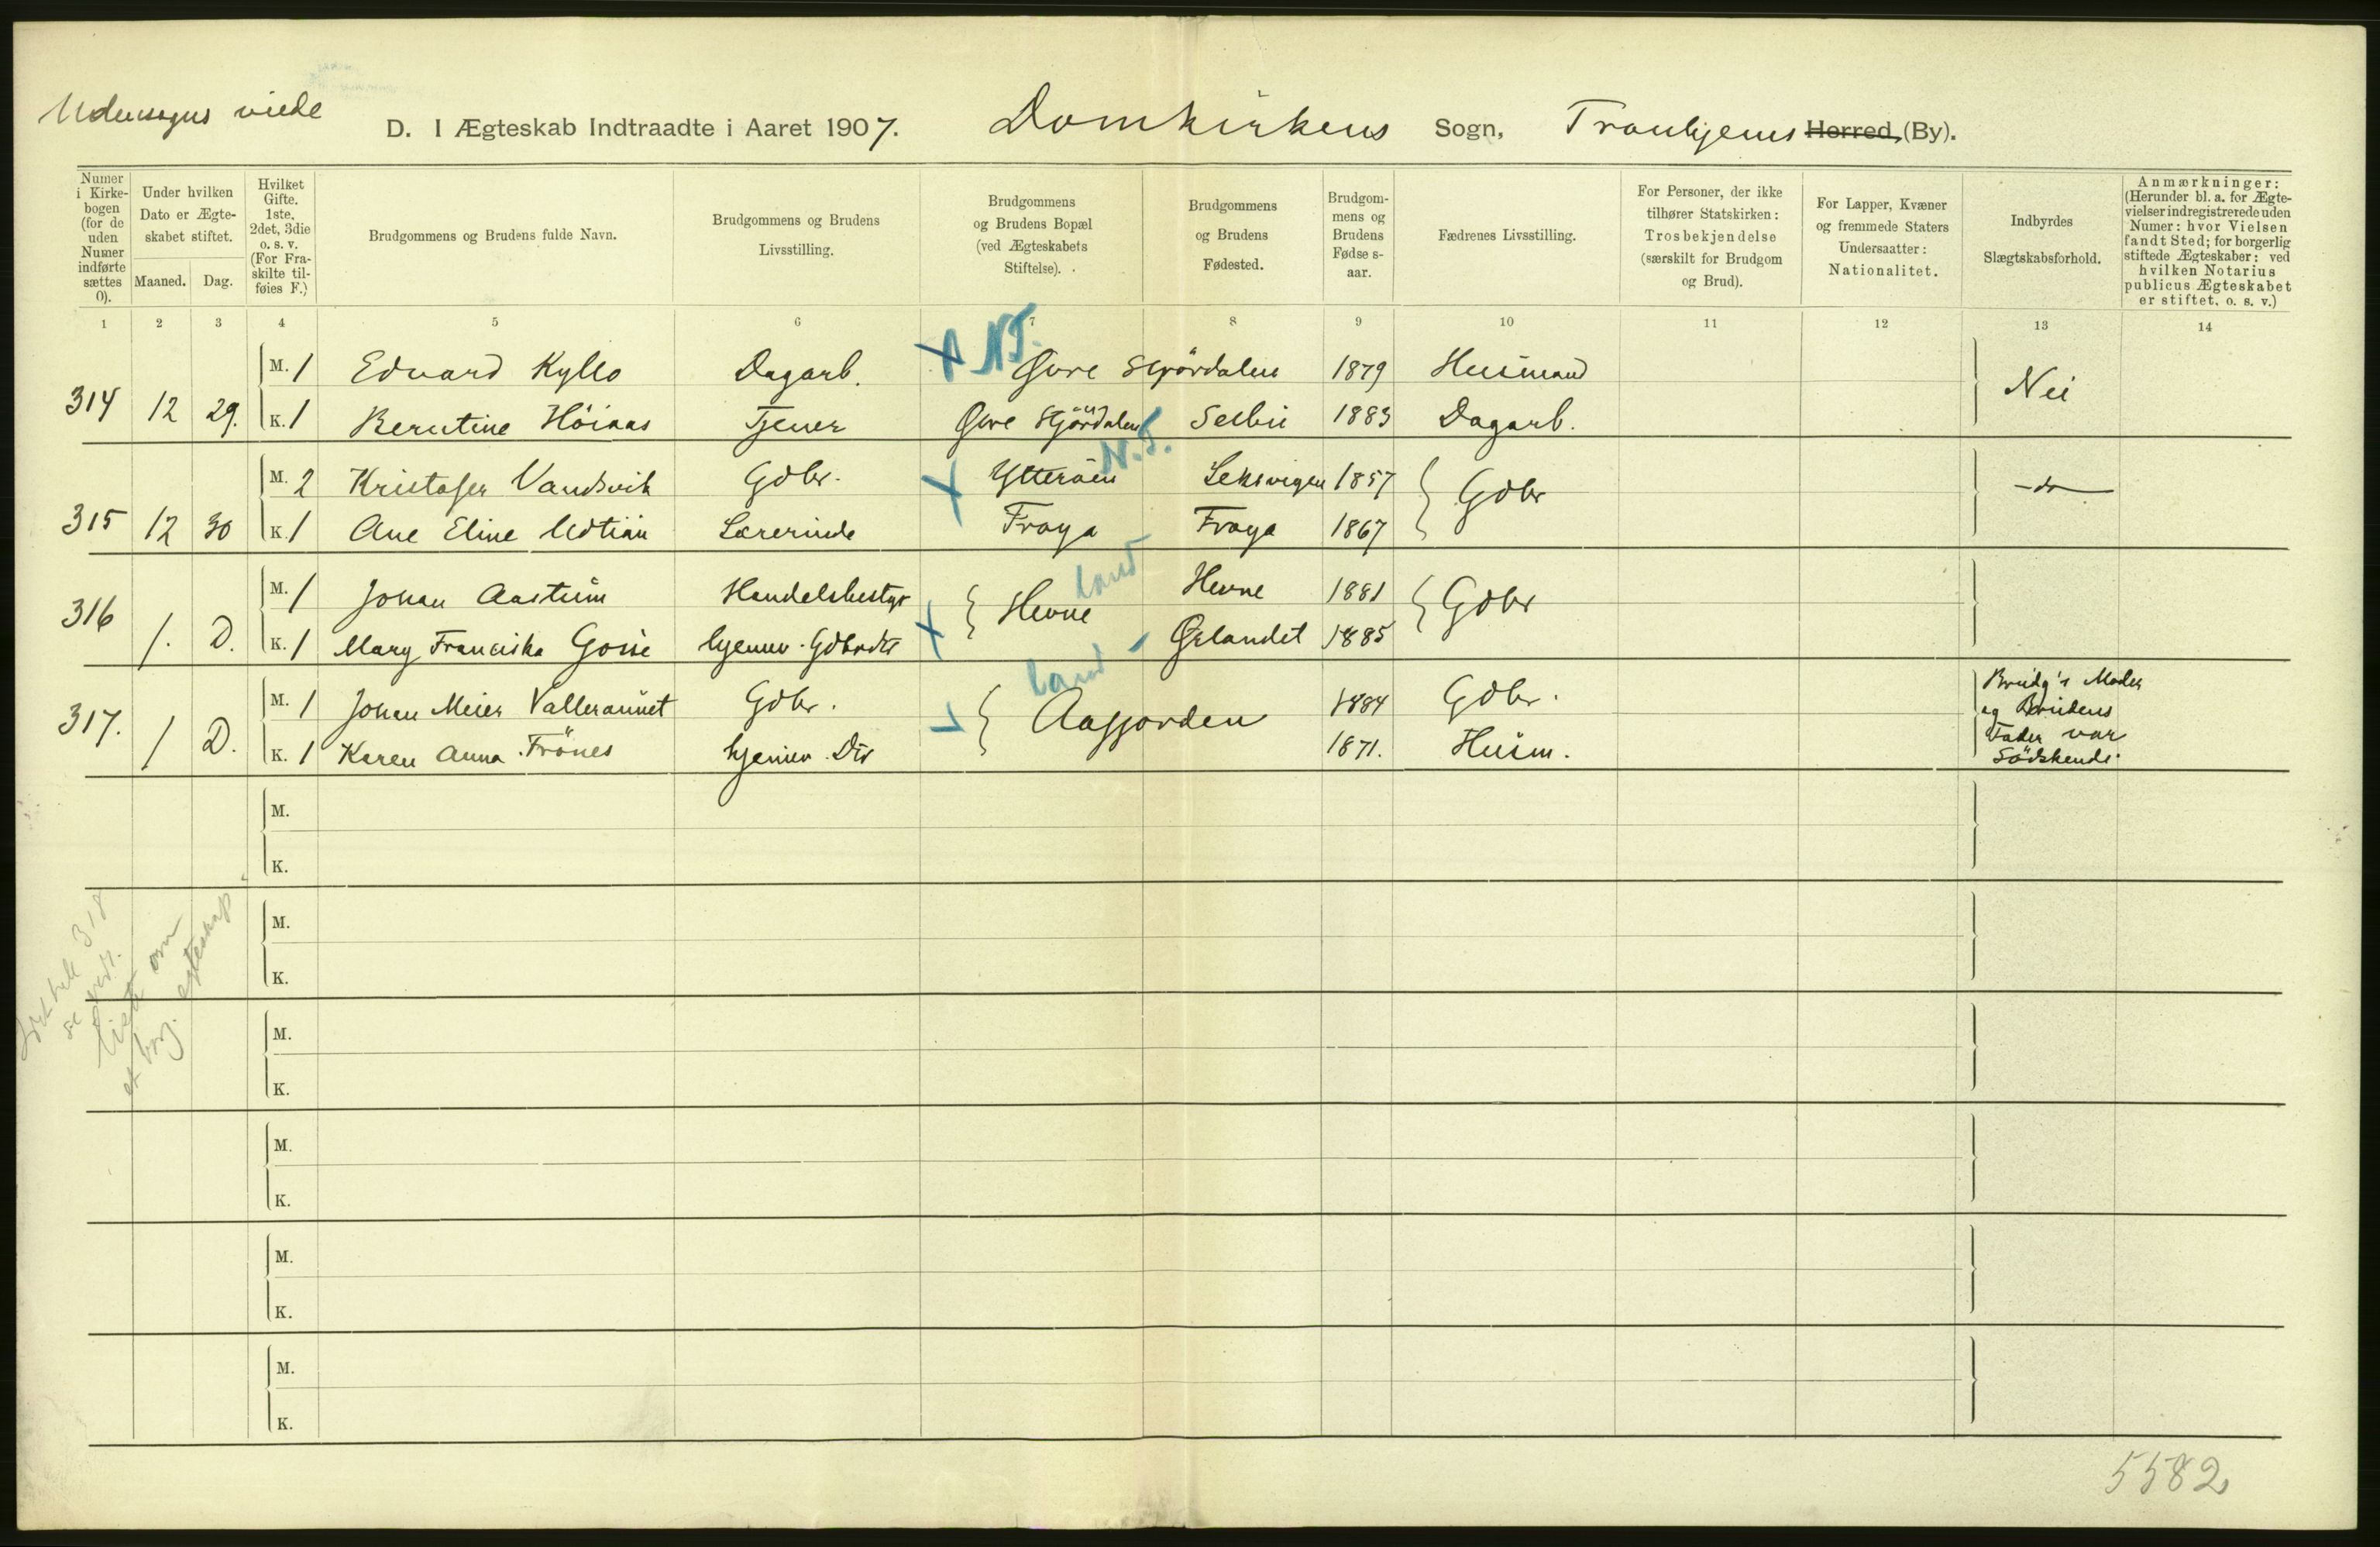 Udensogns viede
D. I Ægteskab Indtraadte i Aaret 1907. Domkirkens Sogn, Tronhjems Herred, (By).
Numer i Kirkebogen (for de uden Numer indførte sættes 0).
Under hvilken Dato er Ægteskabet stiftet.
Maaned. Dag.
Hvilket Gifte. 1ste, 2det, 3die o. s. v. (For Fraskilte tilføies F.)
Brudgommens og Brudens fulde Navn.
Brudgommens og Brudens Livsstilling.
Brudgommens og Brudens Bopæl (ved Ægteskabets Stiftelse).
Brudgommens og Brudens Fødested.
Brudgommens og Brudens Fødselsaar.
Fædrenes Livsstilling.
For Personer, der ikke tilhører Statskirken: Trosbekjendelse (særskilt for Brudgom og Brud).
For Lapper, Kvæner og fremmede Staters Undersaatter: Nationalitet.
Indbyrdes Slægtskabsforhold.
Anmærkninger: (Herunder bl. a. for Ægtevielser indregistrerede uden Numer: hvor Vielsen fandt Sted; for borgerlig stiftede Ægteskaber: ved hvilken Notarius publicus Ægteskabet er stiftet, o. s. v.)
1 2 3 4 5 6 7 8 9 10 11 12 13 14
N.T.
M. 1 Edvard Kyllo Dagarb. Øvre Stjördalen 1879 Husmand
314 12 29. K. 1 Berntine Höiaas Tjener Øvre Stjördalen Selbu 1883 Dagarb. Nei
N.T.
M. 2 Kristofer Vandsvik Gdbr. Ytteröen Leksvigen 1857 Gdbr
315 12 30 K. 1 Ane Eline Udtian Lærerinde Froya Froya 1867 -do-
Land
M. 1 Johan Aastum Handelsbestyr Hevne Hevne 1881 Gdbr
316 1. D. K. 1 Mary Franciska Gosse hjemmv. Gdbrdtr Ørlandet 1885
Land
M. 1 Johan Meier Vallersunnet Gdbr. Aafjorden 1884 Gdbr.
317. 1 D. K. 1 Karen Anna Frönes hjemmv. Dtr 1871. Husm.
Brudg's Moder
og Brudens
Fader var
Södskende.
M.
K.
M.
K.
318
se
liste om
et borg. egteskap
M.
K.
M.
K.
M.
K.
M.
K.
5582